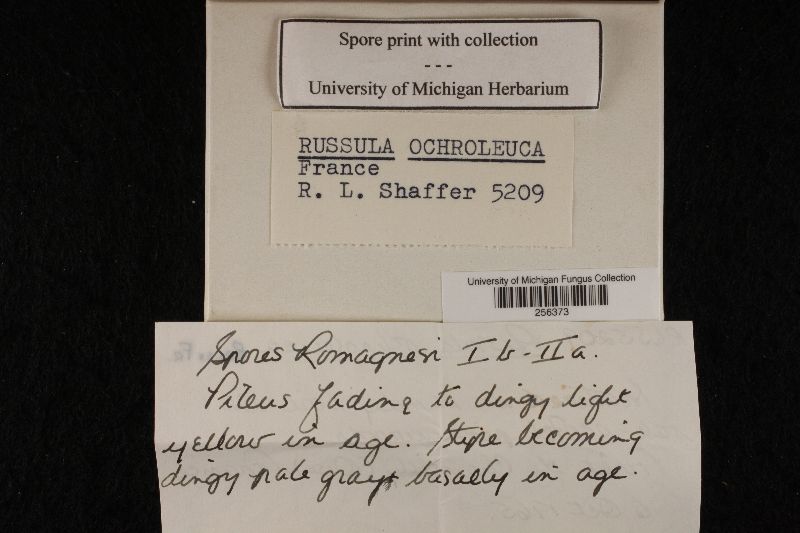 Spore print with collection
---
University of Michigan Herbarium
RUSSULA OCHROLEUCA
France
R. L. Shaffer 5209
University of Michigan Fungus Collection
256373
Spores Romagnesi I b - II a.
Pileus fading to dingy light
yellow in age. Stipe becoming
dingy pale gray basally in age.